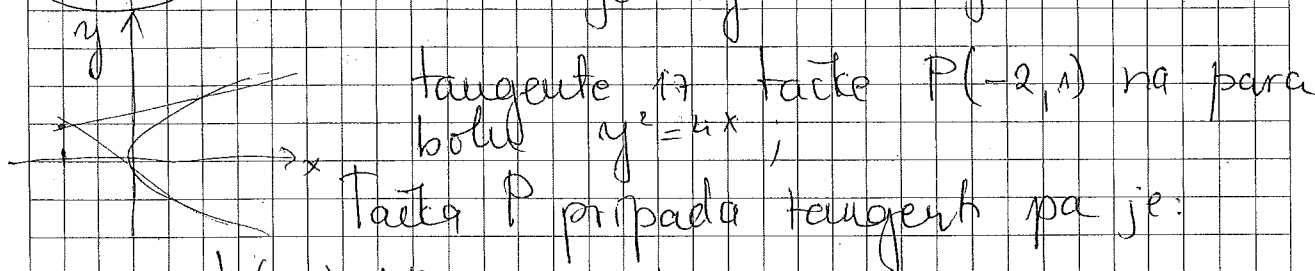 y
tangente iz tačke P(-2,1) na para
bolu y² = 4x ;
x
Tačka P pripada tangenti pa je: